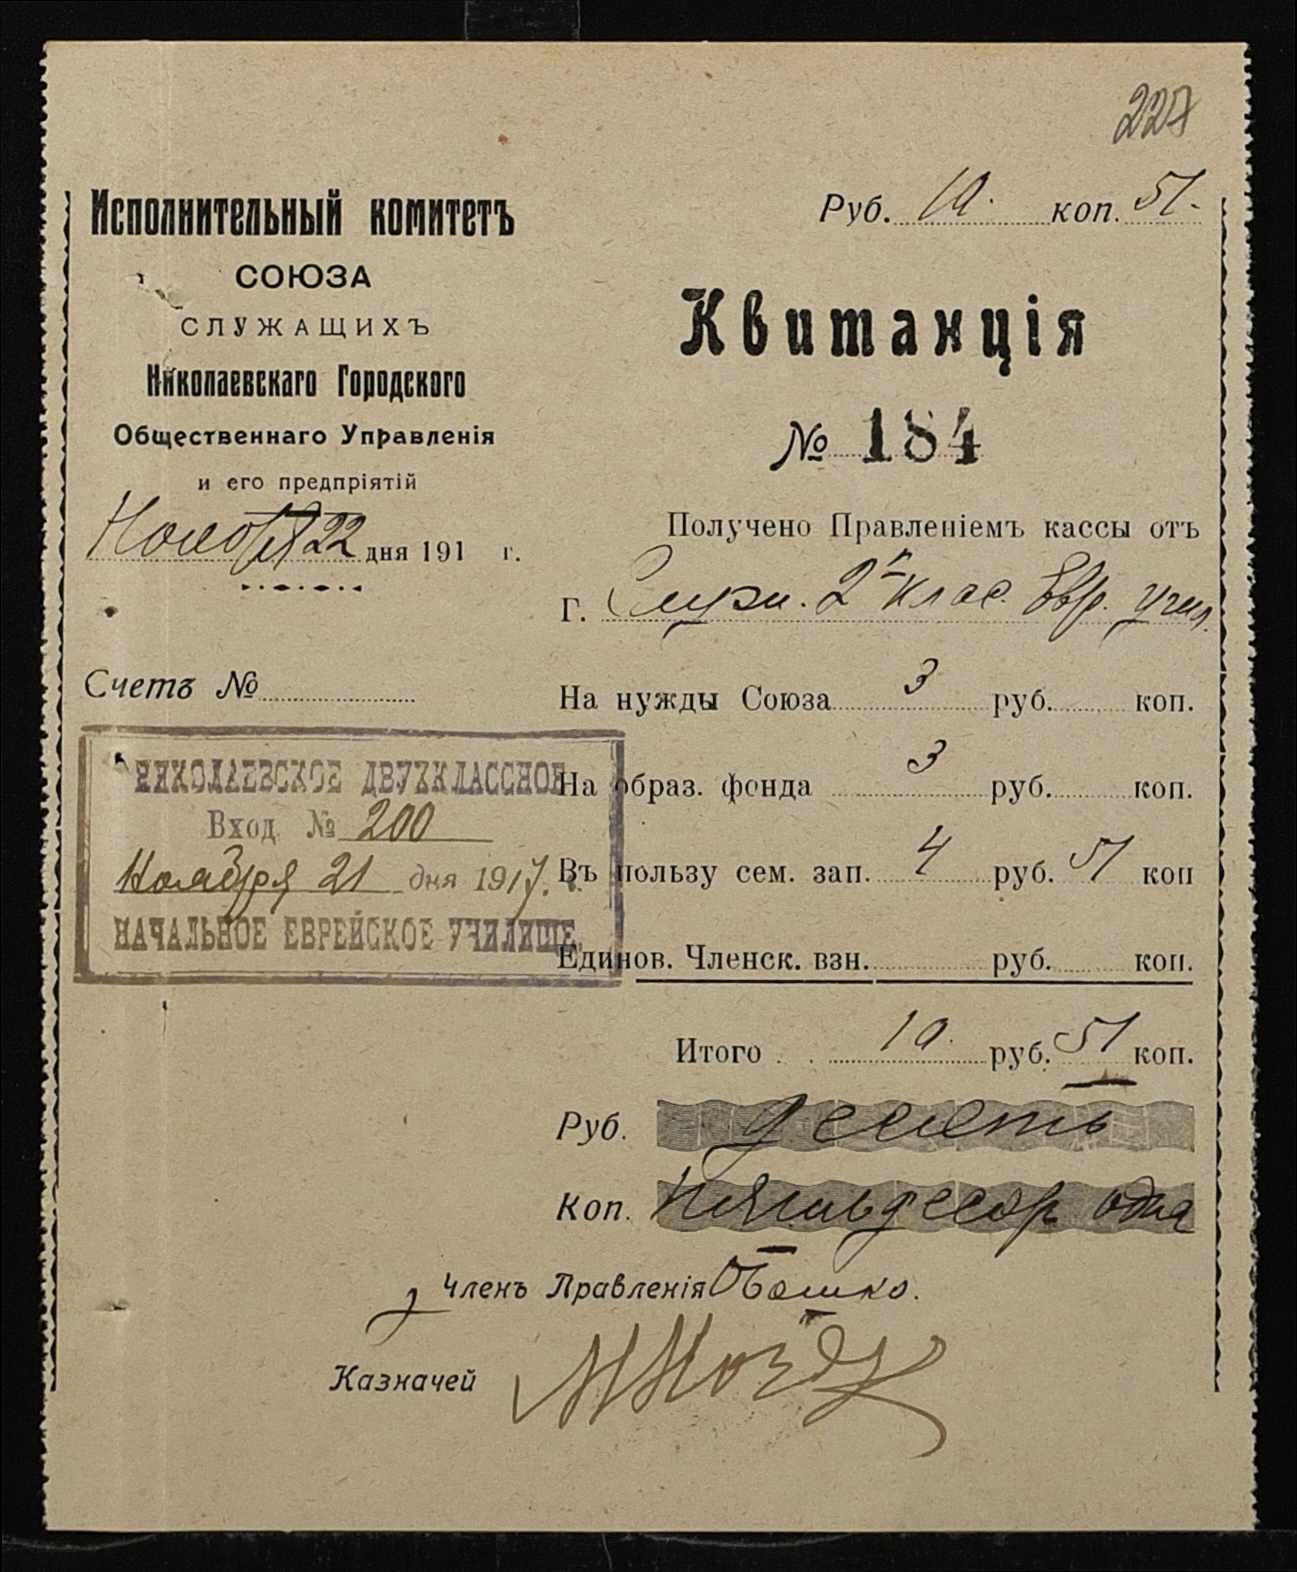 227
Исполнительный комитетъ
СОЮЗА
СЛУЖАЩИХЪ
Николаевскаго Городского
Общественнаго Управленія
и его предпріятій
Ноября 22 дня 191 г.
Счетъ №
НИКОЛАЕВСКОЕ ДВУХКЛАССНОЕ
Вход. № 200
Ноября 21 дня 1917 г.
НАЧАЛЬНОЕ ЕВРЕЙСКОЕ УЧИЛИЩЕ
Руб. 10. коп. 51.
Квитанція
№ 184
Получено Правленіемъ кассы отъ
Г. Служ. 2х клас. Евр. учил.
На нужды Союза 3 руб. коп.
На образ. фонда 3 руб. коп.
Въ пользу сем. зап. 4 руб. 51 коп
Единов. Членск. взн. руб. коп.
Итого . . 10. руб. 51 коп.
Руб. десять
Коп. пятьдесят одна
Членъ Правленія
Казначей